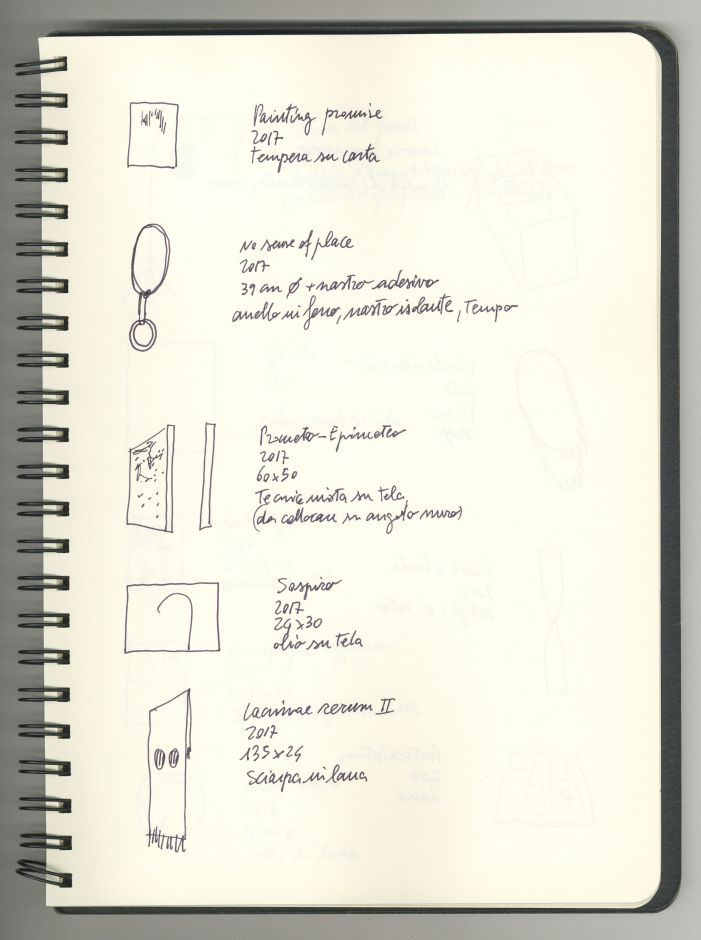 Painting promise
2017
Tempera su carta
No sense of place
2017
39 cm Ø + nastro adesivo
anello in ferro, nastro isolante, Tempo
Prometeo-Epimeteo
2017
60x50
Tecnica mista su tela
(da collocare su angolo muro)
Sospiro
2017
24x30
olio su tela
Lacrimae rerum II
2017
135x24
Sciarpa in lana